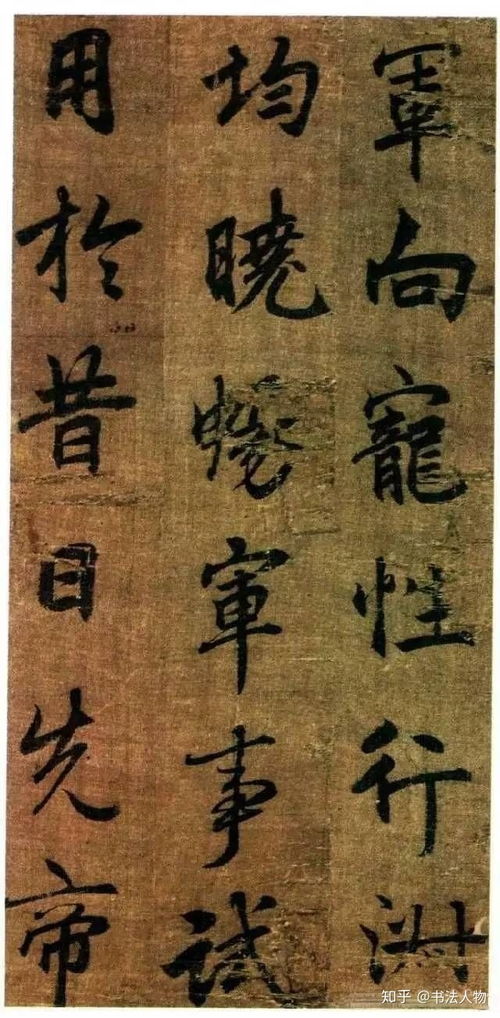 軍向寵性行淑
均曉暢軍事試
用於昔日先帝
知乎 @书法人物